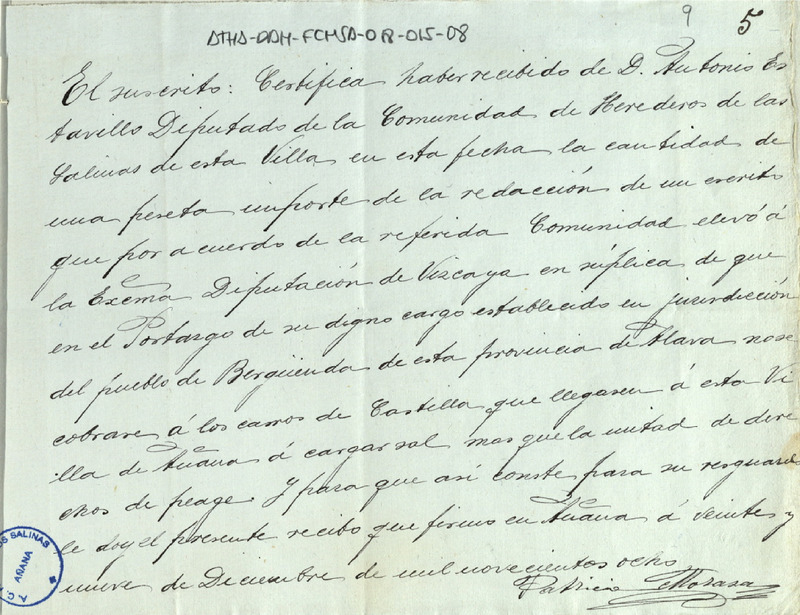 9
5
ATHA-DAH-FCMSA-018-015-08
El suscrito: Certifica haber recibido de D. Antonio Es
tavillo Diputado de la Comunidad de Herederos de las
Salinas de esta Villa en esta fecha la cantidad de
una peseta importe de la redacción de un escrito
que por acuerdo de la referida Comunidad elevó á
la Excma Diputación de Vizcaya en súplica de que
en el Portazgo de su digno cargo establecido en jurisdicción
del pueblo de Bergüenda de esta provincia de Alava no se
cobrare á los carros de Castilla que llegasen á esta Vi
lla de Añana á cargar sal mas que la mitad de dere
chos de peage. Y para que así conste para su resguardo
le doy el presente recibo que firmo en Añana á veinte y
nueve de Diciembre de mil novecientos ocho
Patricio
OS SALINAS
AÑANA